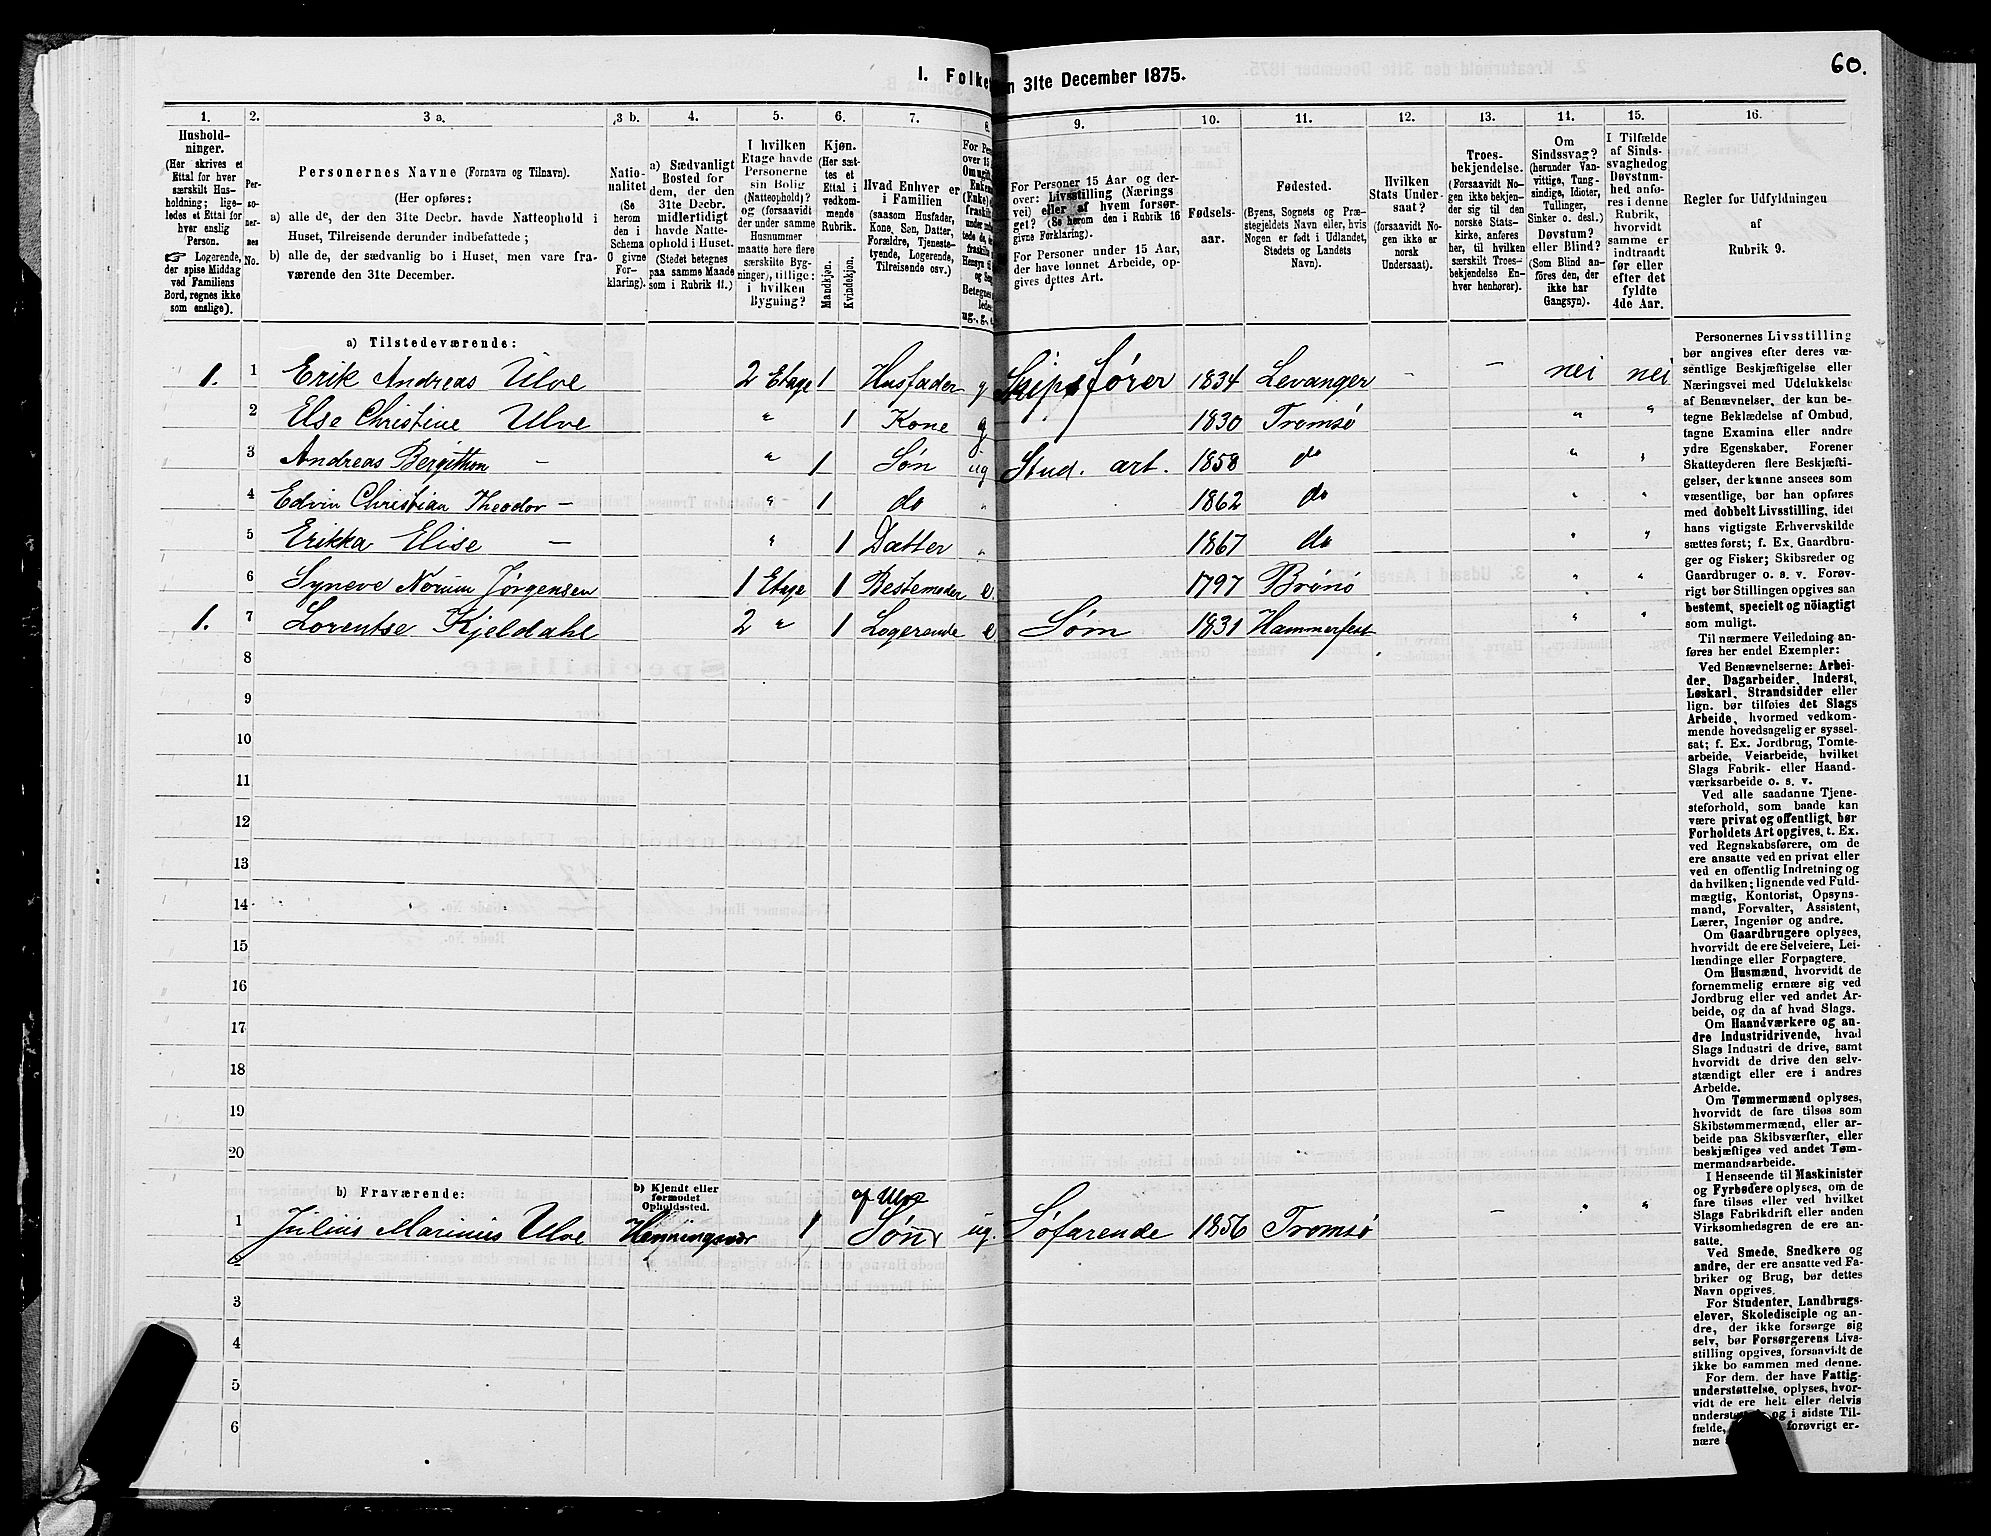 60.
I. Folke n 31te December 1875.
1. 2. 3 a. 3 b. 4. 5. 6. 7. 8. 9. 10. 11. 12. 13. 14. 15. 16.
Hushold-
ninger.
(Her skrives et
Ettal for hver
særskilt Hus-
holdning; lige-
ledes et Ettal for
hver enslig
Person.
☞ Logerende,
der spise Middag
ved Familiens
Bord, regnes ikke
som enslige).
Per-
so-
ner-
nes
No.
Personernes Navne (Fornavn og Tilnavn).
(Her opføres:
a) alle de, der den 31te Decbr. havde Natteophold i
Huset, Tilreisende derunder indbefattede;
b) alle de, der sædvanlig bo i Huset, men vare fra-
værende den 31te December.
Natio-
nalitet
(Se
herom
den i
Schema
O givne
For-
klaring).
a) Sædvanligt
Bosted for
dem, der den
31te Decbr.
midlertidigt
havde Natte-
ophold i Huset.
(Stedet betegnes
paa samme Maade
som i Rubrik 11.)
I hvilken
Etage havde
Personerne
sin Bolig
(Natteophold)?
og (forsaavidt
der under samme
Husnummer
maatte høre flere
særskilte Byg-
ninger), tillige:
i hvilken
Bygning?
Kjøn.
(Her sæt-
tes et
Ettal i
vedkom-
mende
Rubrik.
Mandkjøn.
Kvindekjøn.
Hvad Enhver er
i Familien
(saasom Husfader,
Kone, Søn, Datter,
Forældre, Tjeneste-
tyende, Logerende,
Tilreisende osv.)
For Personer 15 Aar og der-
over: Livsstilling (Nærings
vei) eller af hvem forsør-
get? (Se herom den i Rubrik 16
givne Forklaring).
For Personer under 15 Aar,
der have lønnet Arbeide, op-
gives dettes Art.
Fødsels-
aar.
Fødested.
(Byens, Sognets og Præ-
stegjeldets Navn eller, hvis
Nogen er født i Udlandet,
Stedets og Landets
Navn).
Hvilken
Stats Under-
saat?
(forsaavidt No-
gen ikke er
norsk
Undersaat).
Troes-
bekjendelse.
(Forsaavidt No-
gen ikke bekjen-
der sig til den
norske Stats-
kirke, anføres
her, til hvilken
særskilt Troes-
bekjendelse En-
hver henhører).
Om
Sindssvag?
(herunder Van-
vittige, Tung-
sindige, Idioter,
Tullinger,
Sinker o. desl.)
Døvstum?
eller Blind?
(Som Blind an-
føres den, der
ikke har
Gangsyn).
I Tilfælde
af Sinds-
svaghedog
Døvstum-
hed anfø-
res i denne
Rubrik,
hvorvidt
samme er
indtraadt
før eller
efter det
fyldte
4de Aar.
Regler for Udfyldningen
af
Rubrik 9.
a) Tilstedeværende:
1. 1 Erik Andreas Ulve 2 Etage 1 Husfader g Skipsfører 1834 Levanger - - nei nei
2 Else Christine Ulve " 1 Kone g 1830 Tromsø " "
3 Andreas Bergithon - " 1 Søn ug Stud. art. 1858 do " "
4 Edvin Christian Theodor - " 1 do " 1862 do " "
5 Erikka Elise - " 1 Datter " 1867 do " "
6 Syneve Norum Jørgensen 1 Etage 1 Bestemoder e. 1797 Brønø " "
1. 7 Lorentse Kjeldahl 2 " 1 Logerende e Søm 1831 Hammerfest " "
8
9
10
11
12
13
14
15
16
17
18
19
20
b) Fraværende:
b) Kjendt eller
formodet
Opholdssted.
af Ulve
1 Julius Marinius Ulve Henningsvær 1 Søn ug. Søfarende 1856 Tromsø - " "
2
3
4
5
6
Personernes Livsstilling
bør angives efter deres væ-
sentlige Beskjæftigelse eller
Næringsvei med Udelukkelse
af Benævnelser, der kun be-
tegne Beklædelse af Ombud,
tagne Examina eller andre
ydre Egenskaber. Forener
Skatteyderen flere Beskjæfti-
gelser, der kunne ansees som
væsentlige, bør han opføres
med dobbelt Livsstilling, idet
hans vigtigste Erhvervskilde
sættes først; f. Ex. Gaardbru-
ger og Fisker; Skibsreder og
Gaardbruger o. s. v. Forøv-
rigt bør Stillingen opgives saa
bestemt, specielt og nöiagtigt
som muligt.
Til nærmere Veiledning an-
føres her endel Exempler:
Ved Benævnelserne: Arbei-
der, Dagarbeider, Inderst,
Løskarl, Strandsidder eller
lign. bør tilføies det Slags
Arbeide, hvormed vedkom-
mende hovedsagelig er syssel-
sat; f. Ex. Jordbrug, Tomte-
arbeide, Veiarbeide, hvilket
Slags Fabrik- eller Haand-
værksarbeide o. s. v.
Ved alle saadanne Tjene-
steforhold, som baade kan
være privat og offentligt, bør
Forholdets Art opgives, t. Ex.
ved Regnskabsførere, om de
ere ansatte ved en privat eller
ved en offentlig Indretning og
da hvilken; lignende ved Fuld-
mægtig, Kontorist, Opsyns-
mand, Forvalter, Assistent,
Lærer, Ingeniør og andre.
Om Gaardbrugere oplyses,
hvorvidt de ere Selveiere, Lei-
lændinge eller Forpagtere.
Om Husmænd, hvorvidt de
fornemmelig ernære sig ved
Jordbrug eller ved andet Ar-
beide, og da af hvad Slags.
Om Haandværkere og an-
dre Industridrivende, hvad
Slags Industri de drive, samt
hvorvidt de drive den selv-
stændigt eller ere i andres
Arbeide.
Om Tømmermænd oplyses,
hvorvidt de fare tilsøs som
Skibstømmermænd, eller ar-
beide paa Skibsværfter, eller
beskjæftiges ved andet Tøm-
mermandsarbeide.
I Henseende til Maskinister
og Fyrbødere oplyses, om de
fare tilsøs eller ved hvilket
Slags Fabrikdrift eller anden
Virksomhedsgren de ere an-
satte.
Ved Smede, Snedkere og
andre, der ere ansatte ved Fa-
briker og Brug, bør dettes
Navn opgives.
For Studenter, Landbrugs-
elever, Skoledisciple og an-
dre, der ikke forsørge sig
selv, bør Forsørgerens Livs-
stilling opgives, forsaavidt de
ikke bo sammen med denne.
For dem, der have Fattig-
understøttelse, oplyses, hvor-
vidt de ere helt eller delvis
og i sidste Til-
fælde, forøvrigt er-
nære